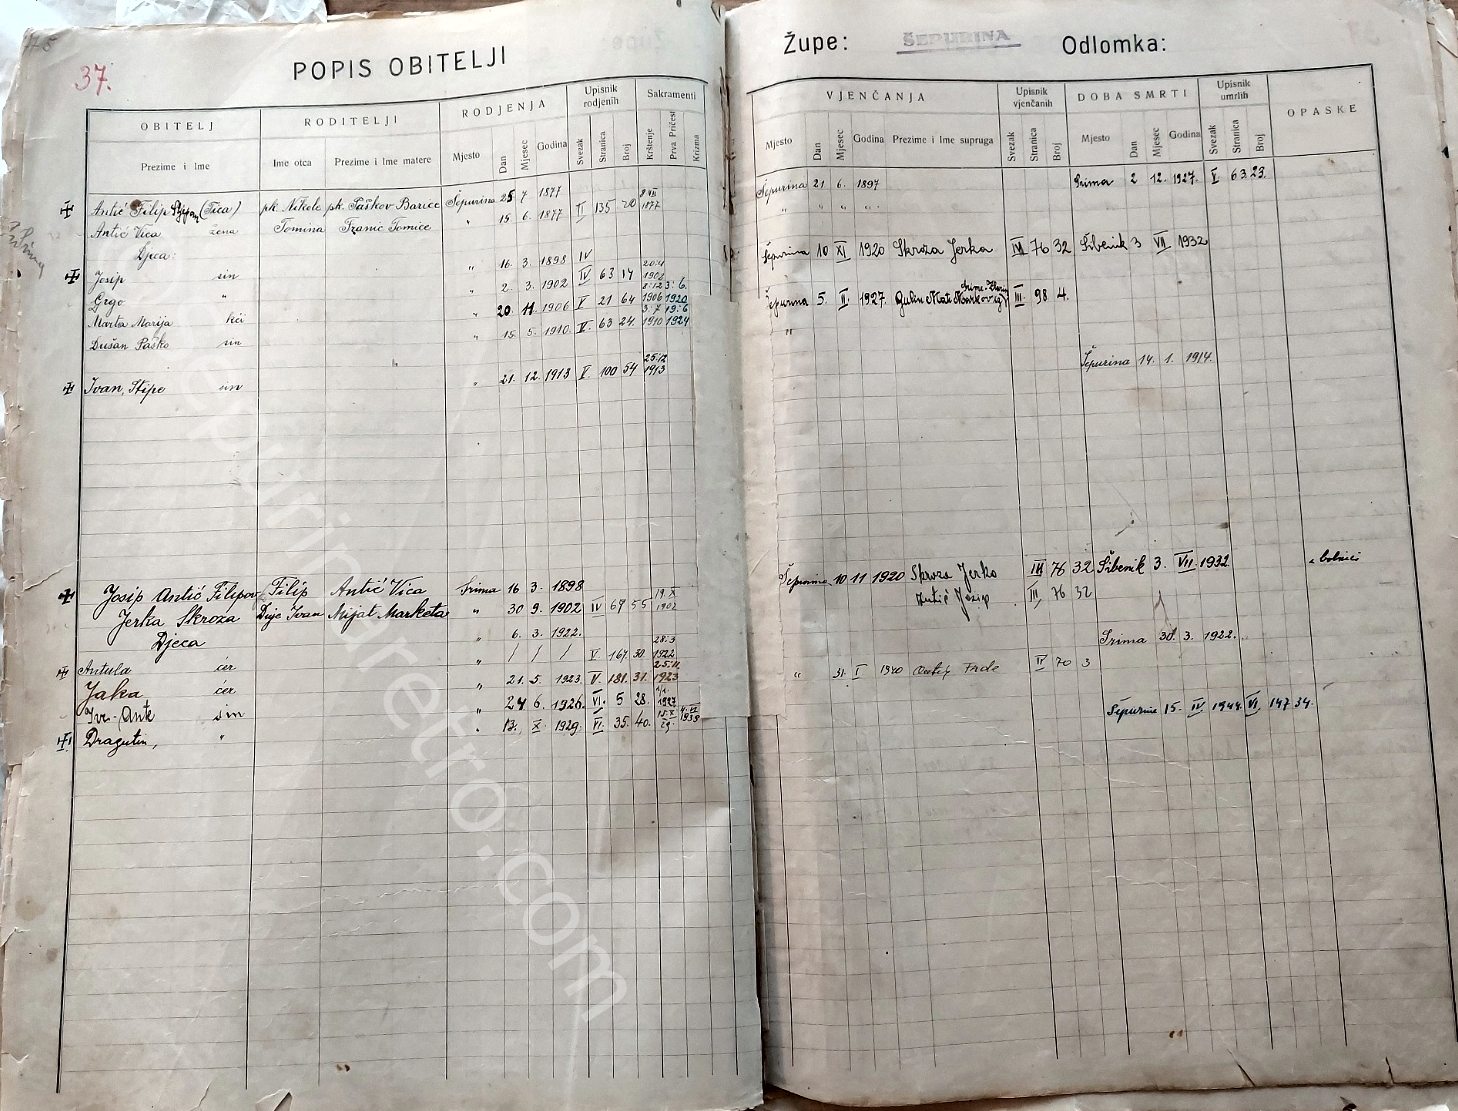 37.
POPIS OBITELJI
Župe: ŠEPURINA Odlomka:
OBITELJ RODITELJI RODJENJA Upisnik rodjenih Sakramenti
Prezime i Ime Ime otca Prezime i Ime matere Mjesto Dan Mjesec Godina Svezak Stranica Broj Krštenje Prva Pričest Krizma
VJENČANJA Upisnik vjenčanih DOBA SMRTI Upisnik umrlih OPASKE
Mjesto Dan Mjesec Godina Prezime i Ime supruga Svezak Stranica Broj Mjesto Dan Mjesec Godina Svezak Stranica Broj
Antić Filip Stjepan (Tica) pk. Nikole pk. Paškov Barice Šepurina 25 7 1877
Šepurina 21 6. 1897 Srima 2 12. 1927. V 63 23.
Antić Vica žena Tomina Tomice " 15 6. 1877 II 135 20 1877
" " " "
Djeca:
Josip sin " 16. 3. 1898 IV
Šepurina 10 XI 1920 Skroza Jerka III 76 32 Šibenik 3 VII 1932
Grgo " " 2 3. 1902 IV 63 14 1902
Šepurina 5. II 1927. III 98 4.
Marta Marija kći 20 11. 1906 V 21 64 1906 1920
"
Dušan Paško sin " 15. 5. 1910. V 63 24. 1910 1924
Ivan, Stipe sin " 21. 12. 1913 V 100 54 25.12 1913
Šepurina 14. 1. 1914.
Josip Antić Filipov Filip Antić Vica Srima 16 3. 1898
Šepurina 10 11 1920 Skroza Jerko III 76 32 Šibenik 3. VII 1932 u bolnici
Jerka Skroza Duje Ivan Mijat Marketa " 30 9. 1902 IV 67 55 19.X 1902
Antić Josip III, 76 32
Djeca " 6. 3. 1922.
Antula ćer " / / / V 167. 30. 28.3 1922
Srima 30. 3. 1922.
Jaka ćer " 21. 5. 1923. V. 181. 31. 25.11. 1923
" 31. I 1940 Antić Frde IV 70 3
Ivr. Ante sin " 24 6. 1926. VI. 5 28. 1927
Dragutin, " " 13. X 1929. VI. 35. 40. 15.X 29. 4.VI 1939
Šepurine 15. IV 1944. VI. 147 34.
sepurinaretro.com